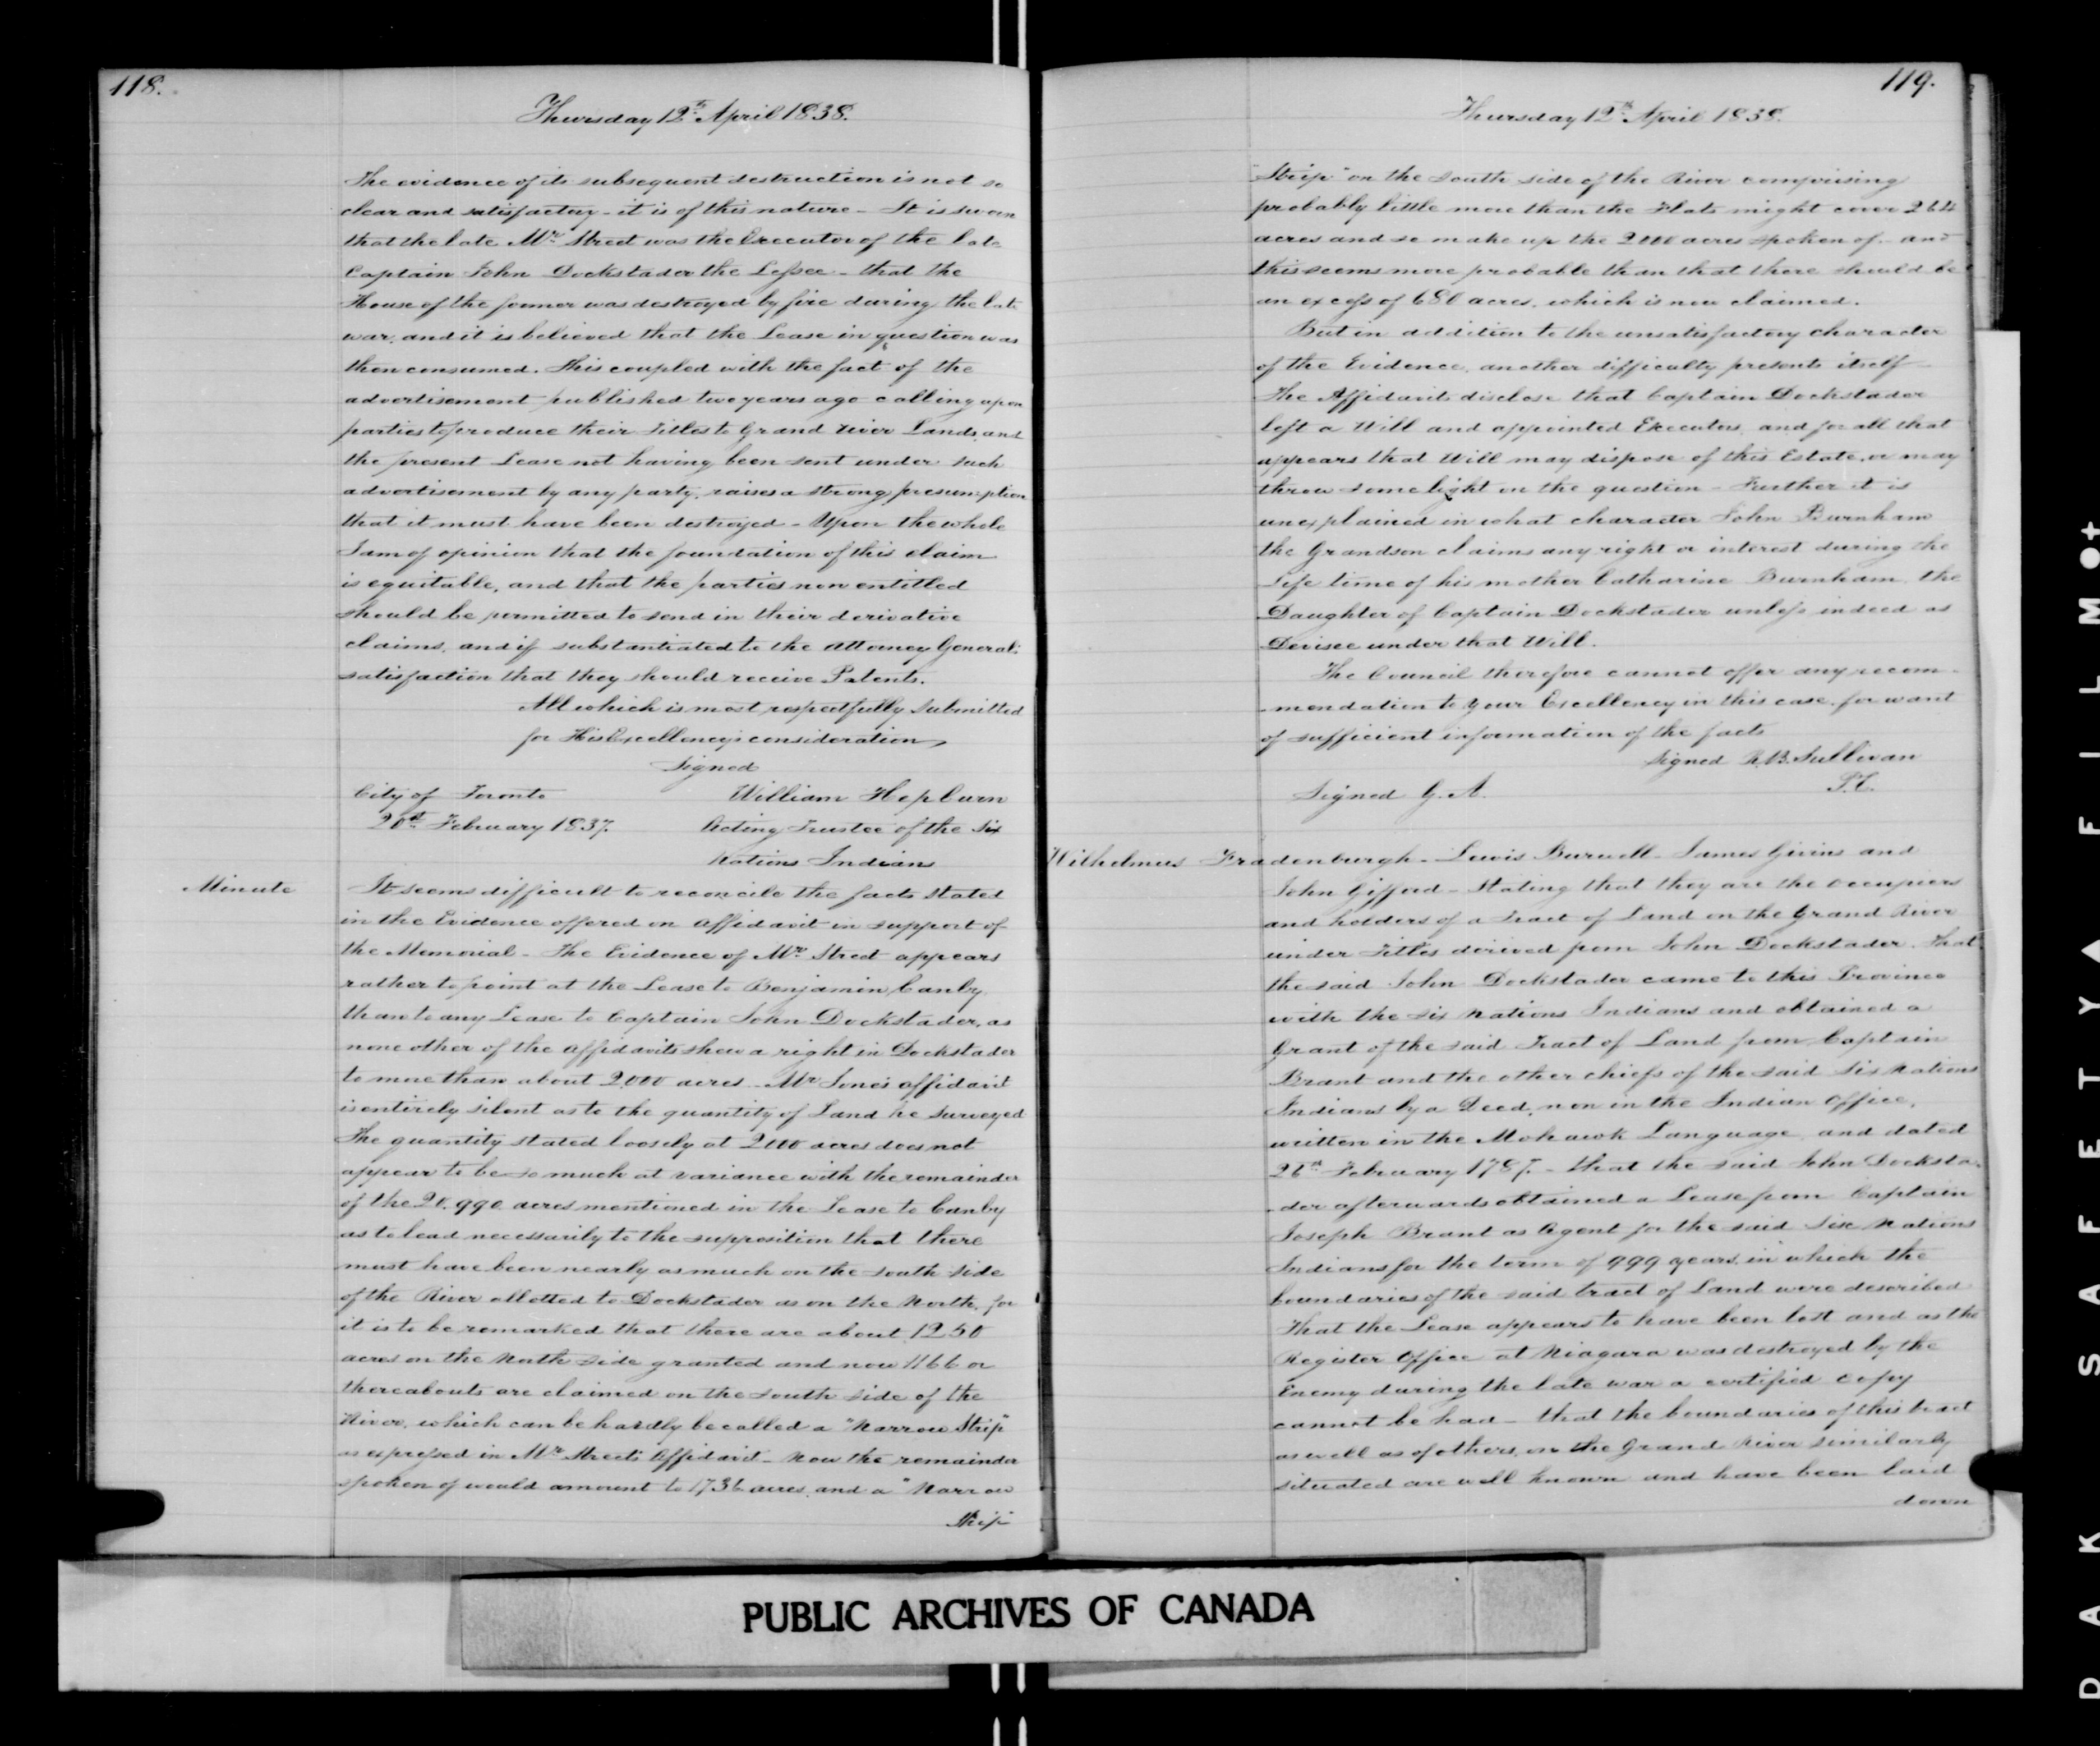 118.
Thursday 12th April 1838.
The evidence of its subsequent destruction is not so
clear and satisfactory - it is of this nature - It is sworn
that the late Mr Street was the Executor of the late
Captain John Dockstader the Lessee - that the
House of the former was destroyed by fire during the late
war, and it is believed that the Lease in question was
then consumed. This coupled with the fact of the
advertisement published two years ago calling upon
parties to produce their Titles to Grand River Lands, and
the present Lease not having been sent under such
advertisement by any party, raises a strong presumption
that it must have been destroyed - Upon the whole
I am of opinion that the foundation of this claim
is equitable, and that the parties now entitled
should be permitted to send in their derivative
claims, and if substantiated to the Attorney General's
satisfaction that they should receive Patents.
All which is most respectfully submitted
for His Excellency's consideration,
Signed
City of Toronto William Hepburn
20th February 1837. Acting Trustee of the Six
Nations Indians
Minute It seems difficult to reconcile the facts stated
in the Evidence offered on affidavit in support of
the Memorial - The Evidence of Mr Street appears
rather to point at the Lease to Benjamin Canby
than to any Lease to Captain John Dockstader, as
none other of the affidavits shew a right in Dockstader
to more than about 2,000 acres - Mr Jones affidavit
is entirely silent as to the quantity of Land he surveyed
The quantity stated loosely at 2000 acres does not
appear to be so much at variance with the remainder
of the 20,990 acres mentioned in the Lease to Canby
as to lead necessarily to the supposition that there
must have been nearly as much on the south side
of the River allotted to Dockstader as on the North, for
it is to be remarked that there are about 1250
acres on the North side granted and now 1166 or
thereabouts are claimed on the south side of the
River, which can be hardly be called a "Narrow Strip"
as expressed in Mr Street's Affidavit - Now the remainder
spoken of would amount to 1736 acres, and a "Narrow
Strip
119.
Thursday 12th April 1838.
Strip" on the south side of the River comprising
probably little more than the Flats might cover 264
acres and so make up the 2000 acres spoken of - and
this seems more probable than that there should be
an excess of 680 acres, which is now claimed.
But in addition to the unsatisfactory character
of the Evidence, another difficulty presents itself
The Affidavits disclose that Captain Dockstader
left a Will and appointed Executors, and for all that
appears that Will may dispose of this Estate, or may
throw some light on the question - Further it is
unexplained in what character John Burnham
the Grandson claims any right or interest during the
Life time of his mother Catharine Burnham, the
Daughter of Captain Dockstader unless indeed as
Devisee under that Will.
The Council therefore cannot offer any recom-
-mendation to Your Excellency in this case, for want
of sufficient information of the facts
Signed R.B. Sullivan
Signed G. A. P.C.
Wilhelmus Fradenburgh - Lewis Burwell - James Givins and
John Gifford - Stating that they are the occupiers
and holders of a tract of Land on the Grand River
under Titles derived from John Dockstader. That
the said John Dockstader came to this Province
with the Six Nations Indians and obtained a
Grant of the said Tract of Land from Captain
Brant and the other chiefs of the said Six Nations
Indians by a Deed, now in the Indian Office,
written in the Mohawk Language, and dated
26th February 1787. - that the said John Docksta-
-der afterwards obtained a Lease from Captain
Joseph Brant as Agent for the said Six Nations
Indians for the term of 999 years, in which the
boundaries of the said tract of Land were described
That the Lease appears to have been lost and as the
Register Office at Niagara was destroyed by the
Enemy during the late war a certified copy
cannot be had - that the boundaries of this tract
as well as of others, on the Grand River similarly
situated are well known and have been laid
down
PUBLIC ARCHIVES OF CANADA
D A K S A F E T Y ▲ F I L M ● +